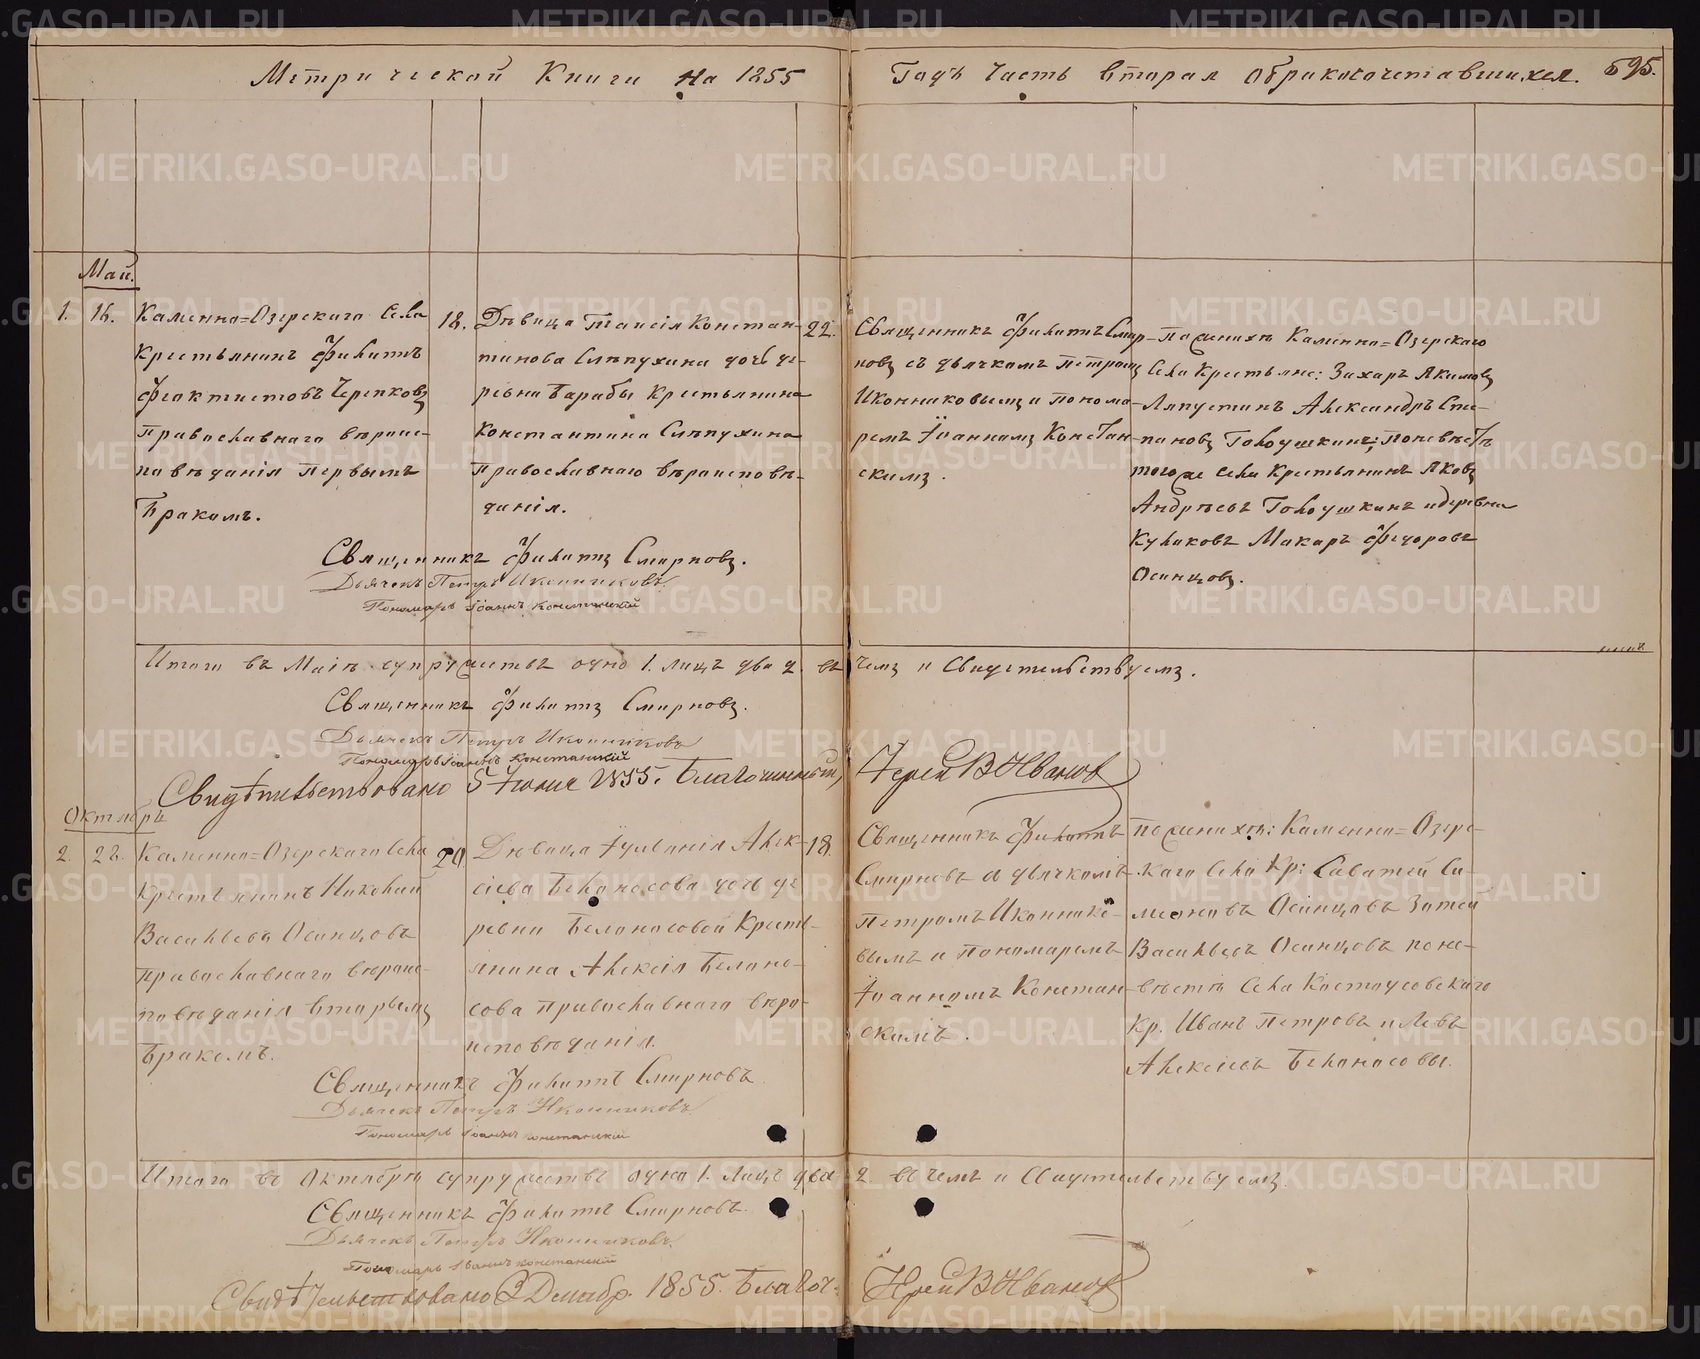 Метрической Книги на 1855
Годъ Часть вторая о бракосочетавшихся. 595.
Май.
1. 16. Каменно=Озерскаго Села
Крестьянинъ Филиппъ
Феоктистовъ Черепковъ
Православнаго вѣроис-
повѣданія Первымъ
Бракомъ.
18. Дѣвица Таисія Констан-
тинова Слѣпухина дочь де-
ревни Барабы Крестьянина
Константина Слѣпухина
Православнаго вѣроисповѣ-
данія.
22. Священникъ Филиппъ Смир-
новъ съ дьячкомъ Петромъ
Иконниковымъ и Понома-
ремъ Іоанномъ Констан-
скимъ.
По женихѣ Каменно=Озерскаго
Села Крестьяне: Захаръ Якимовъ
Ляпустинъ Александръ Сте-
пановъ Голоушкинъ; По невѣстѣ
того же Села Крестьянинъ Яковъ
Андрѣевъ Голоушкинъ и деревни
Куликовъ Макаръ Федоровъ
Осинцовъ.
Священникъ Филиппъ Смирновъ.
Дьячекъ Петръ Иконниковъ
Пономарь Іоаннъ Констанскій
Итого въ Маіѣ супружествъ одно 1. лицъ два 2. въ чемъ и Свидетельствуемъ.
Священникъ Филиппъ Смирновъ.
Дьячекъ Петръ Иконниковъ
Пономарь Іоаннъ Констанскій
Свидѣтельствовано 5 Іюня 1855. Благочинный, Іерей В Ивановъ
Октябрь
2. 22. Каменно=Озерскаго Села
Крестьянинъ Николай
Васильевъ Осинцовъ
православнаго вѣроис-
повѣданія вторымъ
Бракомъ.
20 Дѣвица Іуліанія Алек-
сіева Белоносова дочь де
ревни Белоносовой Кресть-
янина Алексія Белоно-
сова православнаго вѣро-
исповѣданія.
18. Священникъ Филиппъ
Смирновъ съ дьячкомъ
Петромъ Иконнико-
вымъ и пономаремъ
Іоанномъ Констан-
скимъ.
По женихѣ: Каменно=Озерс-
каго Села Кр: Саватей Си-
меоновъ Осинцовъ Зотей
Васильевъ Осинцовъ по не-
вѣстѣ Села Костоусовскаго
Кр. Иванъ Петровъ и Левъ
Алексіевъ Белоносовы.
Священникъ Филиппъ Смирновъ
Дьячекъ Петръ Иконниковъ
Пономарь Іоаннъ Констанскій
Итого въ Октябрѣ супружествъ одно 1. лицъ два 2. въ чемъ и Свидетельствуемъ.
Священникъ Филиппъ Смирновъ.
Дьячекъ Петръ Иконниковъ.
Пономарь Іоаннъ Констанскій
Свидѣтельствовано 3 Декабр. 1855. Благоч: Іерей В Ивановъ
METRIKI.GASO-URAL.RU